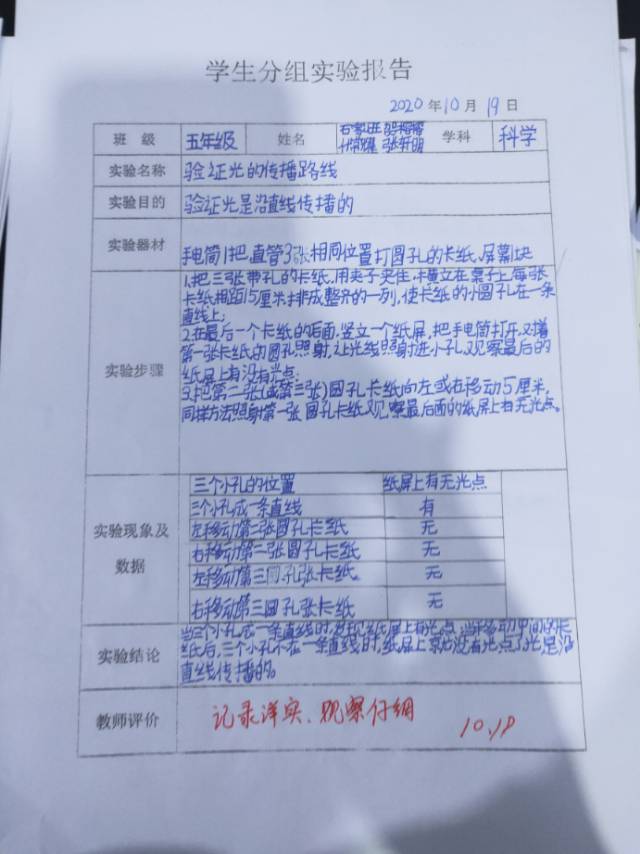 学生分组实验报告
2020年10月19日
班 级 五年级 姓名 张轩明 学科 科学
实验名称 验证光的传播路线
实验目的 验证光是沿直线传播的
实验器材 手电筒1把,直管3张相同位置打圆孔的卡纸.屏幕1块
实验步骤
1.把三张带孔的卡纸.用夹子夹住,横立在桌子上,每张
卡纸相距15厘米排成整齐的一列,使卡纸的小圆孔在一条
直线上;
2.在最后一个卡纸的后面.竖立一个纸屏,把手电筒打开,对准
第一张卡纸的圆孔照射,让光线照射进小孔观察最后的
纸屏上有没有光点.
3.把第二张(或第三张)圆孔卡纸向左或右移动5厘米,
同样方法照射第一张圆孔卡纸观察最后面的纸屏上有无光点。
实验现象及数据
三个小孔的位置 纸屏上有无光点
三个小孔成一条直线 有
左移动第二张圆孔卡纸 无
右移动第二张圆孔卡纸 无
左移动第三圆孔张卡纸。 无
右移动第三圆孔张卡纸 无
实验结论
当三个小孔在一条直线时,发现纸屏上有光点,当移动中间的卡
纸后,三个小孔不在一条直线时,纸屏上就没有光点了光是沿
直线传播的。
教师评价 记录详实、观察仔细 10.19